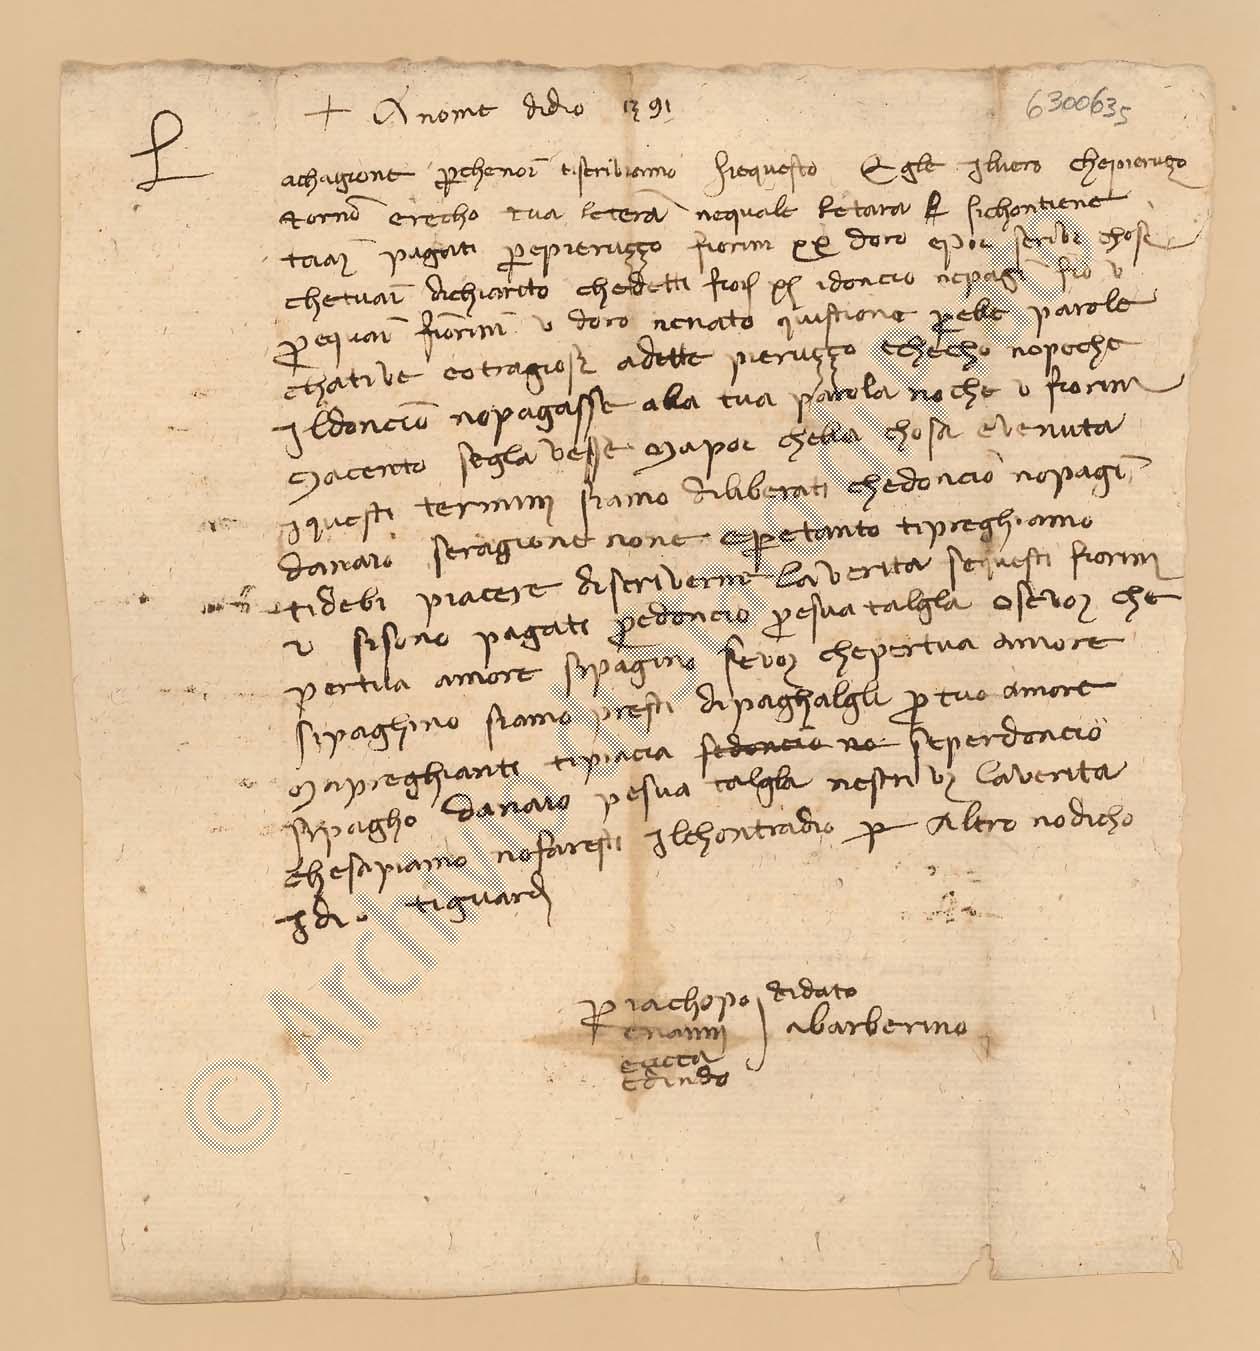 + A nome didio 1391
6300635
L
achagione perchenoi tiscriviamo siequesto Egle ilvero chepieruzo
torno erecho tua letera nequale letara si sichontiene
pagati perepieruzzo fiorini xx doro epoi scrivi chose
chetuai dichiarito chedetti fior xx idoncio nepagi fio v
perequai fiorini v doro nenato quistione perele parole
chative eotragiose adette pieruzzo echecho nopoche
Ildoncio nopagasse ala tua parola noche v fiorini
Macento seglavesse Mapoi chella chosa evenuta
iquesti termini siamo diliberati chedoncio nopagi
danaio seragione none eperetanto tipreghiamo
tidebi piacere discriverne laverita sequesti fiorini
v sisono pagati peredoncio peresua talgla Osevoi che
pertua amore sipagino sevoi chepertua amore
sipaghino siamo presti dipaghalgli per tuo amore
Mapreghianti tipiacia sedoncio no seperdoncio
sipagho danaio pesua talgla nescrivi laverita
chesapiamo nofaresti ilchontradio per Altro nodicho
Idio tiguardi
Per iachopo didato
enanni abarberino
ecicca
edindo
© Archivio di Stato di